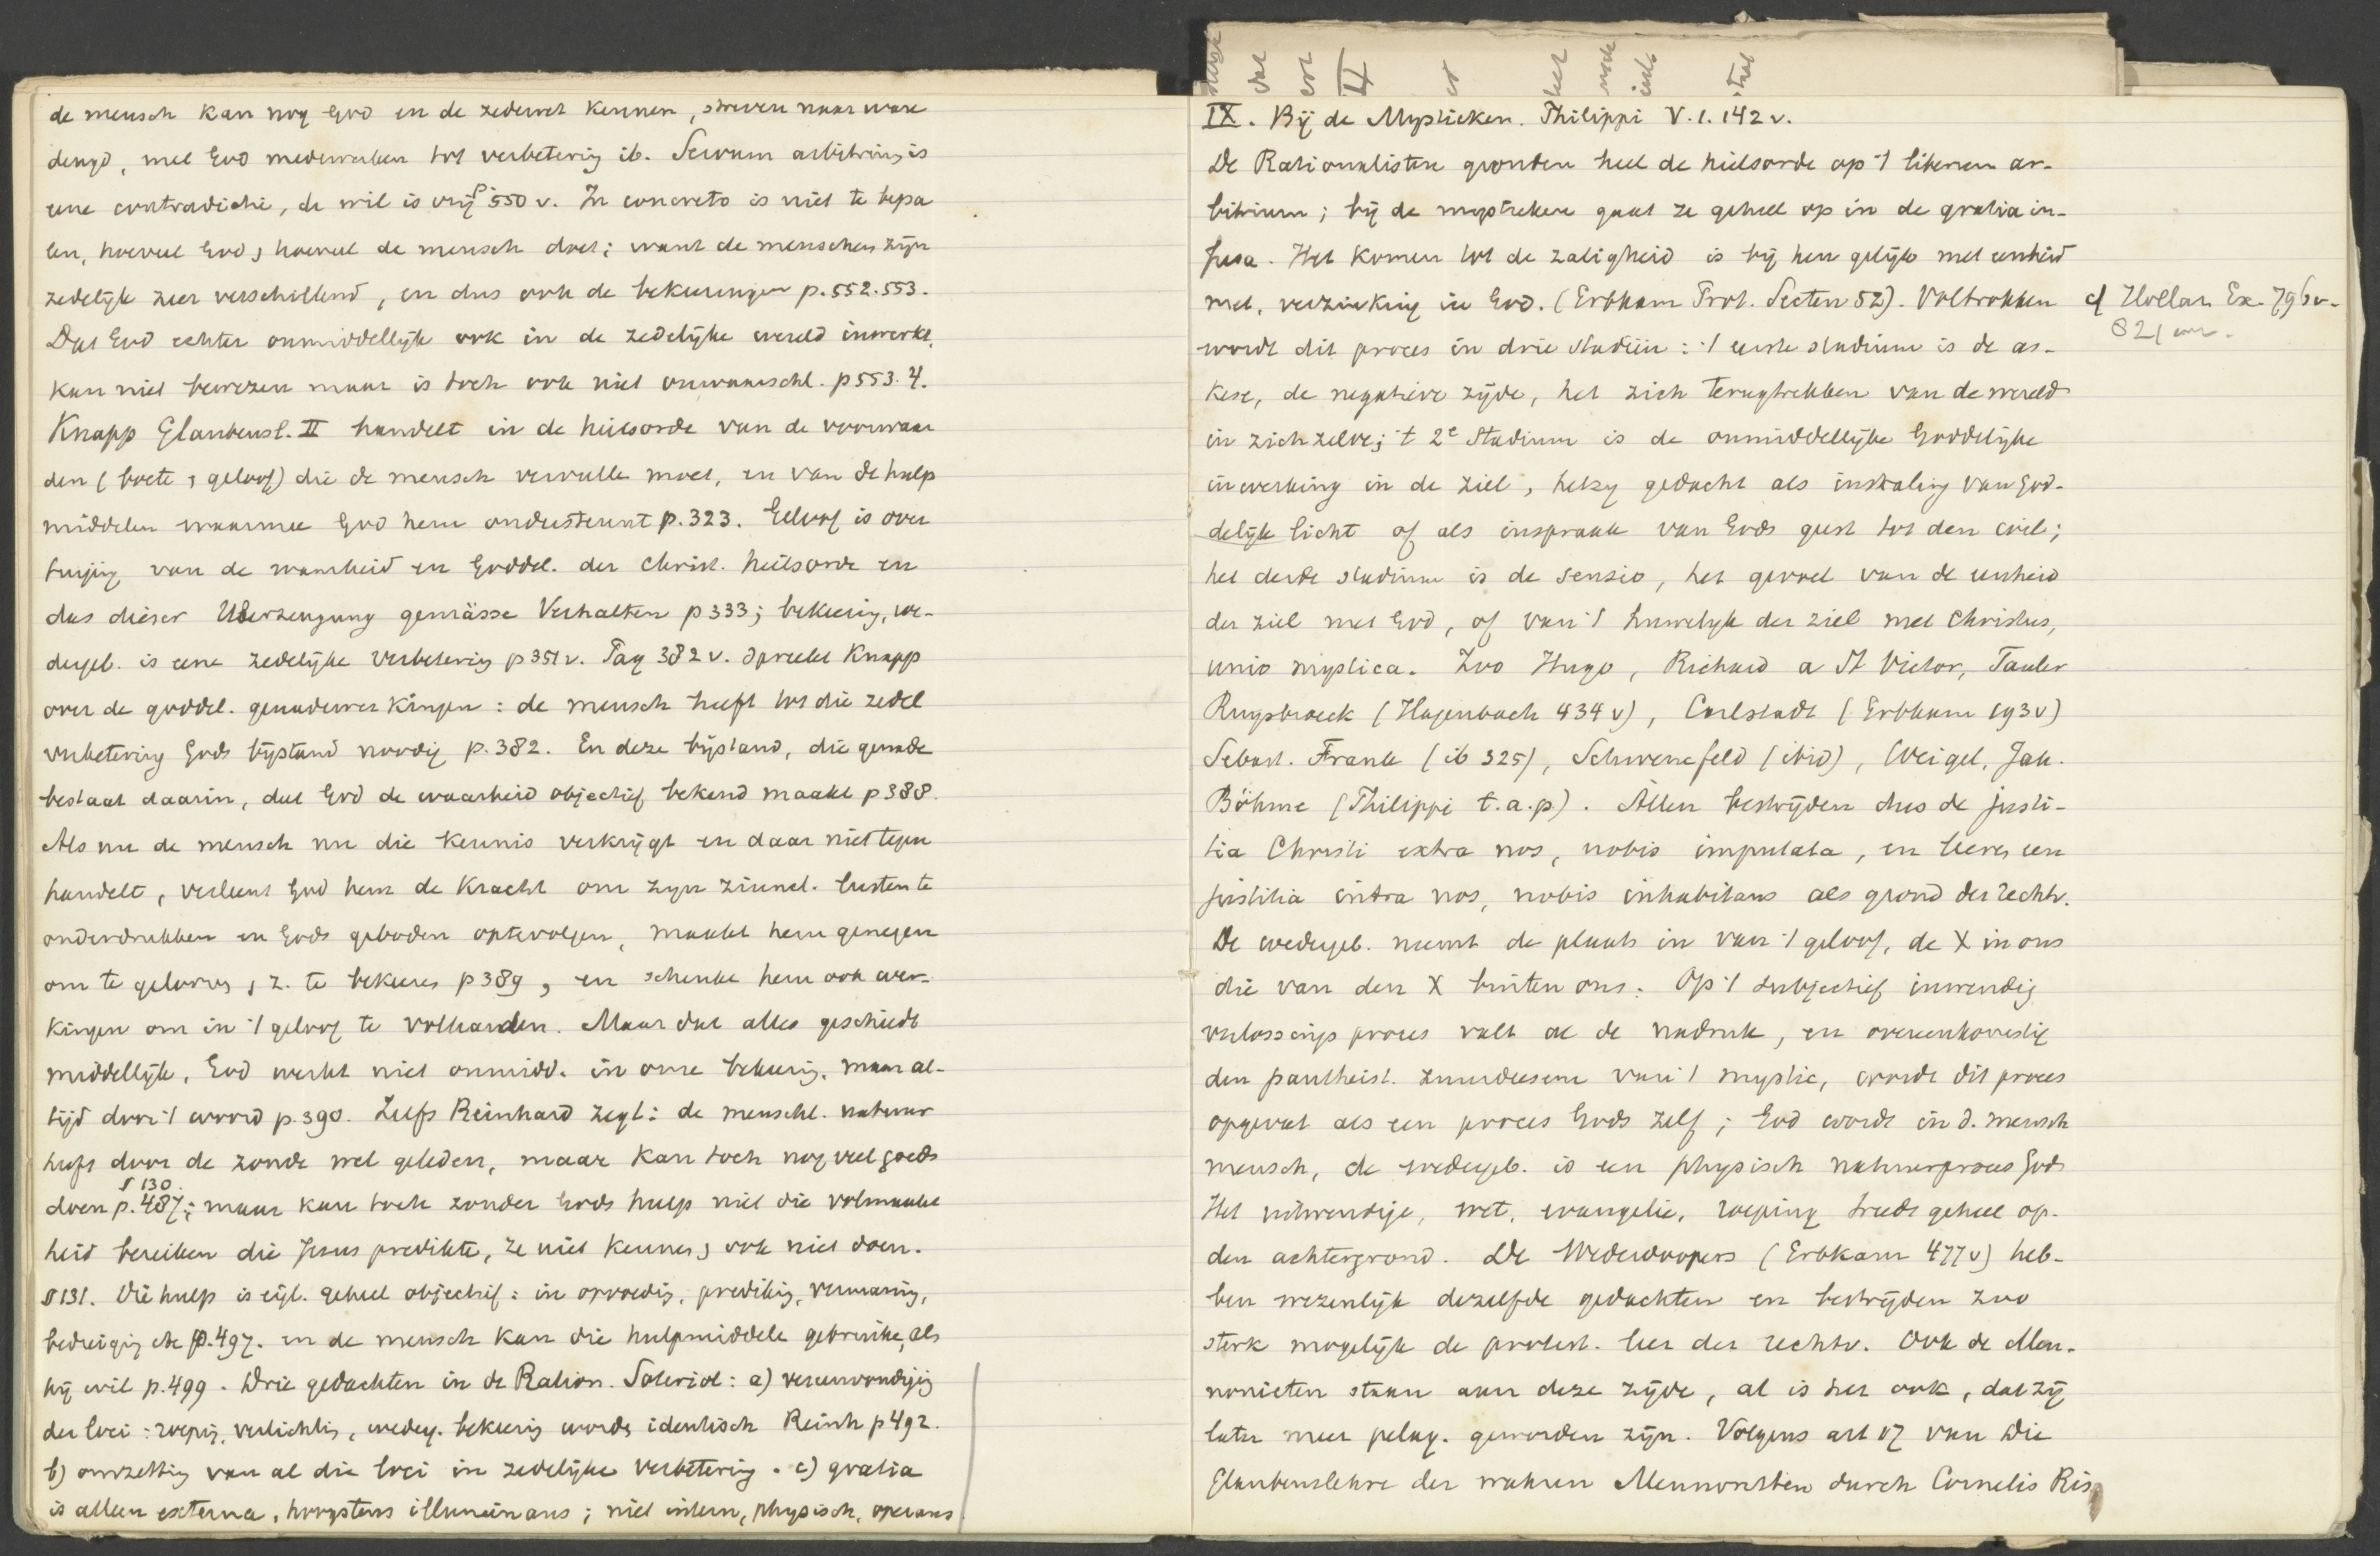 de mensch kan nog God en de zedewet kennen, streven naar ware
deugd, met God medewerken tot verbetering ib. Servum arbitrium is
eene contradictie, de wil is vrij p. 550 v. In concreto is niet te bepa
len, hoeveel God, hoeveel de mensch doet; want de menschen zijn
zedelijk zeer verschillend, en dus ook de bekeeringen p. 552. 553.
Dat God echter onmiddellijk ook in de zedelijke wereld inwerkt,
kan niet bewezen maar is toch ook niet onwaarschl. p 553. 4.
Knapp Glaubensl. II handelt in de heilsorde van de voorwaar
den (boete, geloof) die de mensch vervullen moet, en van de hulp
middelen waarmee God hem ondersteunt p. 323. Geloof is over
tuiging van de waarheid en Goddel. der Christ. heilsorde en
das dieser Überzeugung gemässe Verhalten p 333; bekeering, we-
dergeb. is eene zedelijke verbetering p 351 v. Par 382 v. spreekt Knapp
over de goddel. genadewerkingen: de mensch heeft tot die zedel
verbetering Gods bijstand noodig p. 382. En deze bijstand, die genade
bestaat daarin, dat God de waarheid objectief bekend maakt p 388.
Als nu de mensch nu die kennis verkrijgt en daar niet tegen
handelt, verleent God hem de kracht om zijn zinnel. lusten te
onderdrukken en Gods geboden optevolgen, maakt hem genegen
om te gelooven, z. te bekeeren p 389, en schenkt hem ook wer-
kingen om in 't geloof te volharden. Maar dat alles geschiedt
middellijk, God werkt niet onmidd. in onze bekeering, maar al-
tijd door 't woord p. 390. Zelfs Reinhard zegt: de menschl. natuur
heeft door de zonde wel geleden, maar kan toch nog veel goeds
§ 130.
doen p. 487; maar kan toch zonder Gods hulp niet die volmaakt
heid bereiken die Jezus predikte, ze niet kennen, ook niet doen.
§ 131. Die hulp is eigl. geheel objectief: in opvoeding, prediking, vermaning,
bedreiging etc p. 497. en de mensch kan die hulpmiddelen gebruiken, als
hij wil p. 499. Drie gedachten in de Ration. Soteriol: a) vereenvoudiging
der loci: roeping, verlichting, wederg. bekeering worden identisch Reinh p 492.
b) omzetting van al die loci in zedelijke verbetering. c) gratia
is alleen externa, hoogstens illuminans; niet intern, physisch, operans
IX. Bij de Mystieken. Philippi V. 1. 142 v.
De Rationalisten gronden heel de heilsorde op 't liberum ar-
bitrium; bij de mystieken gaat ze geheel op in de gratia in-
fusa. Het komen tot de zaligheid is bij hen gelijk met eenheid
met, verzinking in God. (Erbkam Prot. Secten 52). Voltrokken
cf Hollaz Ex. 796 v-
821
wordt dit proces in drie stadiën: 't eerste stadium is de as-
kese, de negatieve zijde, het zich terugtrekken van de wereld
in zichzelve; 't 2e Stadium is de onmiddellijke Goddelijke
inwerking in de ziel, hetzij gedacht als instraling van God-
delijk licht of als inspraak van Gods geest tot den wil;
het derde stadium is de sensio, het gevoel van de eenheid
der ziel met God, of van 't huwelijk der ziel met Christus,
unio mystica. Zoo Hugo, Richard a St Victor, Tauler
Ruysbroeck (Hagenbach 434 v), Carlstadt (Erbkam 193 v)
Sebast. Frank (ib 325), Schwenkfeld (ibid), Weigel, Jak.
Böhme (Philippi t.a.p). Allen bestrijden dus de justi-
tia Christi extra nos, nobis imputata, en leeren een
justitia intra nos, nobis inhabitans als grond der rechtv.
De wedergeb. neemt de plaats in van 't geloof, de X in ons
die van den X buiten ons. Op 't subjectief inwendig
verlossings proces valt al de nadruk, en overeenkomstig
den pantheist. zuurdeesem van 't mystic, wordt dit proces
opgevat als een proces Gods zelf; God wordt in d. mensch
mensch, de wedergeb. is een physisch natuurproces Gods
Het uitwendige, wet, evangelie, roeping treedt geheel op
den achtergrond. De Wederdoopers (Erbkam 477 v) heb-
ben wezenlijk dezelfde gedachten en bestrijden zoo
sterk mogelijk de protest. leer der rechtv. Ook de Men-
nonieten staan aan deze zijde, al is het ook, dat zij
later meer pelag. geworden zijn. Volgens art 17 van Die
Glaubenslehre der wahren Mennoniten durch Cornelis Ris